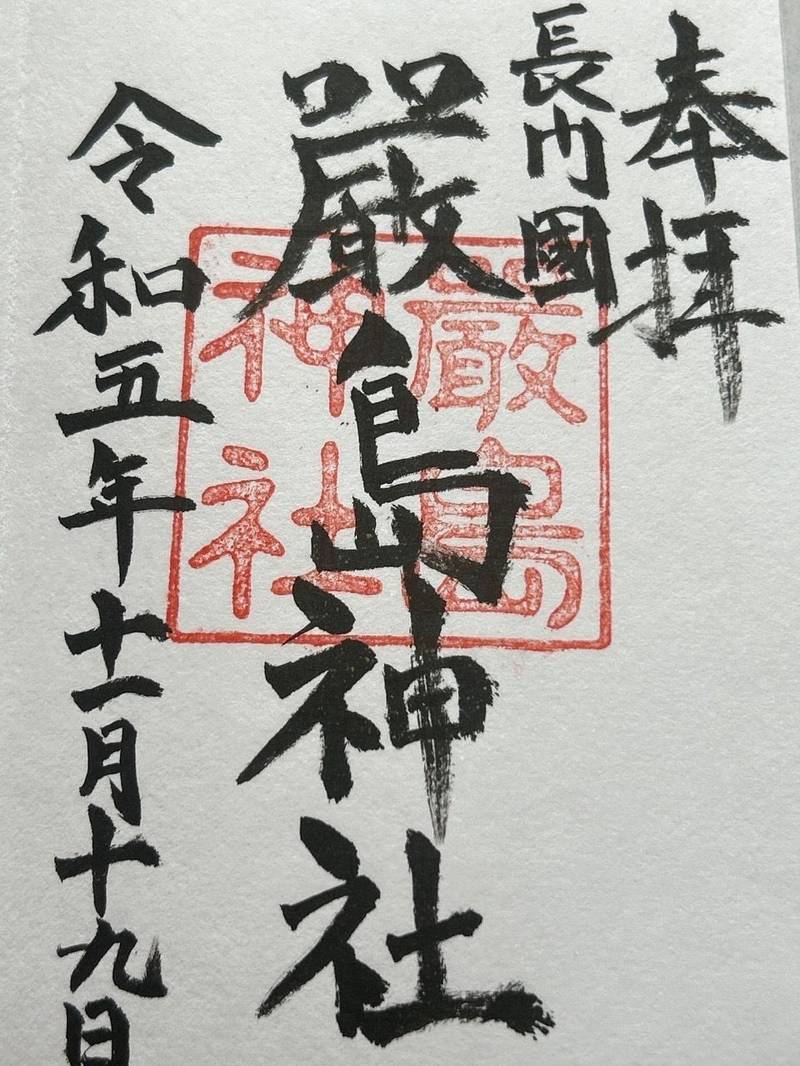 奉拝
長門國
嚴島神社
令和五年十一月十九日
嚴島
神社